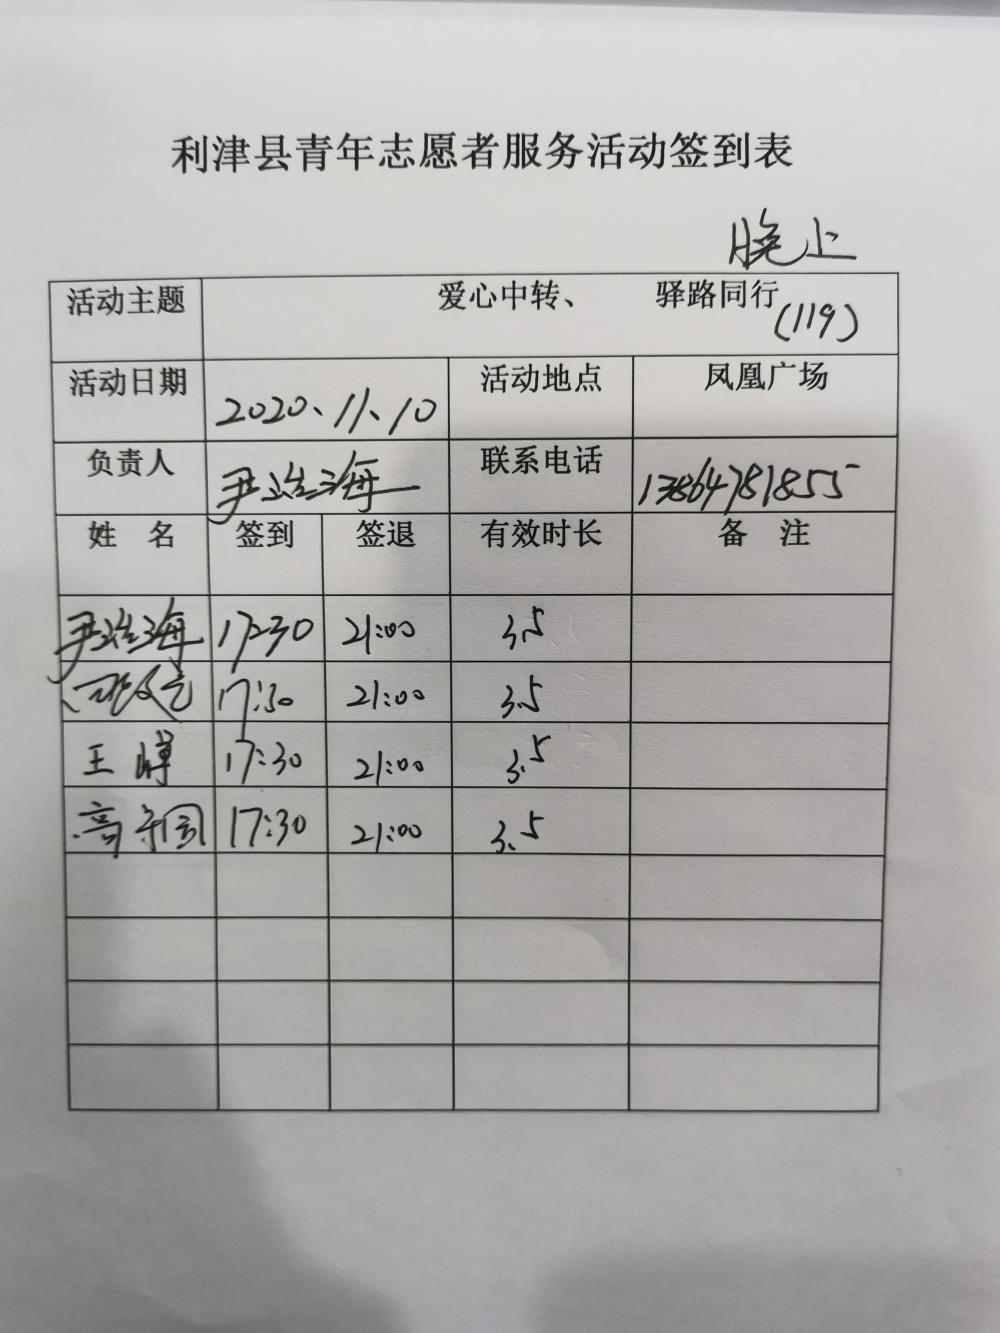 利津县青年志愿者服务活动签到表
晚上
活动主题 爱心中转、 驿路同行 (119)
活动日期 2020、11、10 活动地点 凤凰广场
负责人 尹海 联系电话 13864781855
姓 名 签到 签退 有效时长 备 注
尹海 17:30 21:00 3.5
17:30 21:00 3.5
王博 17:30 21:00 3.5
高守国 17:30 21:00 3.5